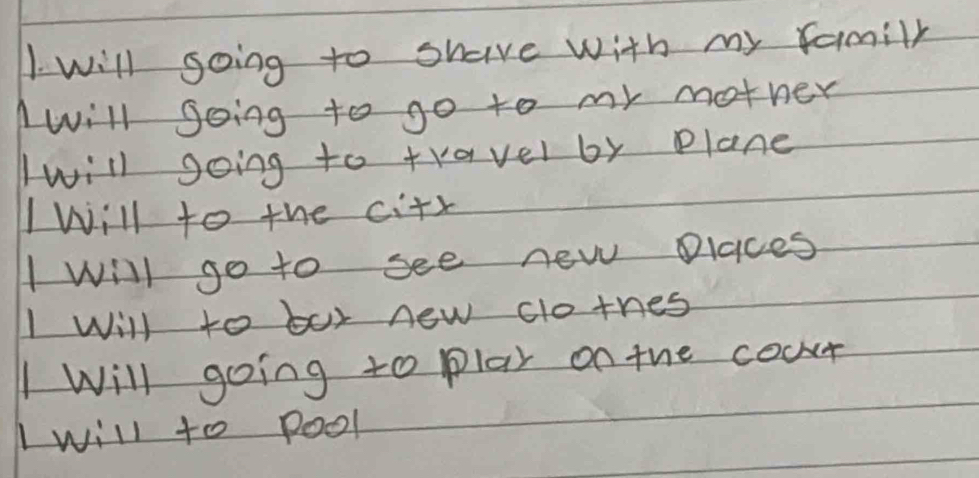 I will going to share with my family
I will going to go to my mother
I will going to travel by plane
I will to the city
I will go to see new places
I will to buy new clothes
I will going to play on the court
I will to pool